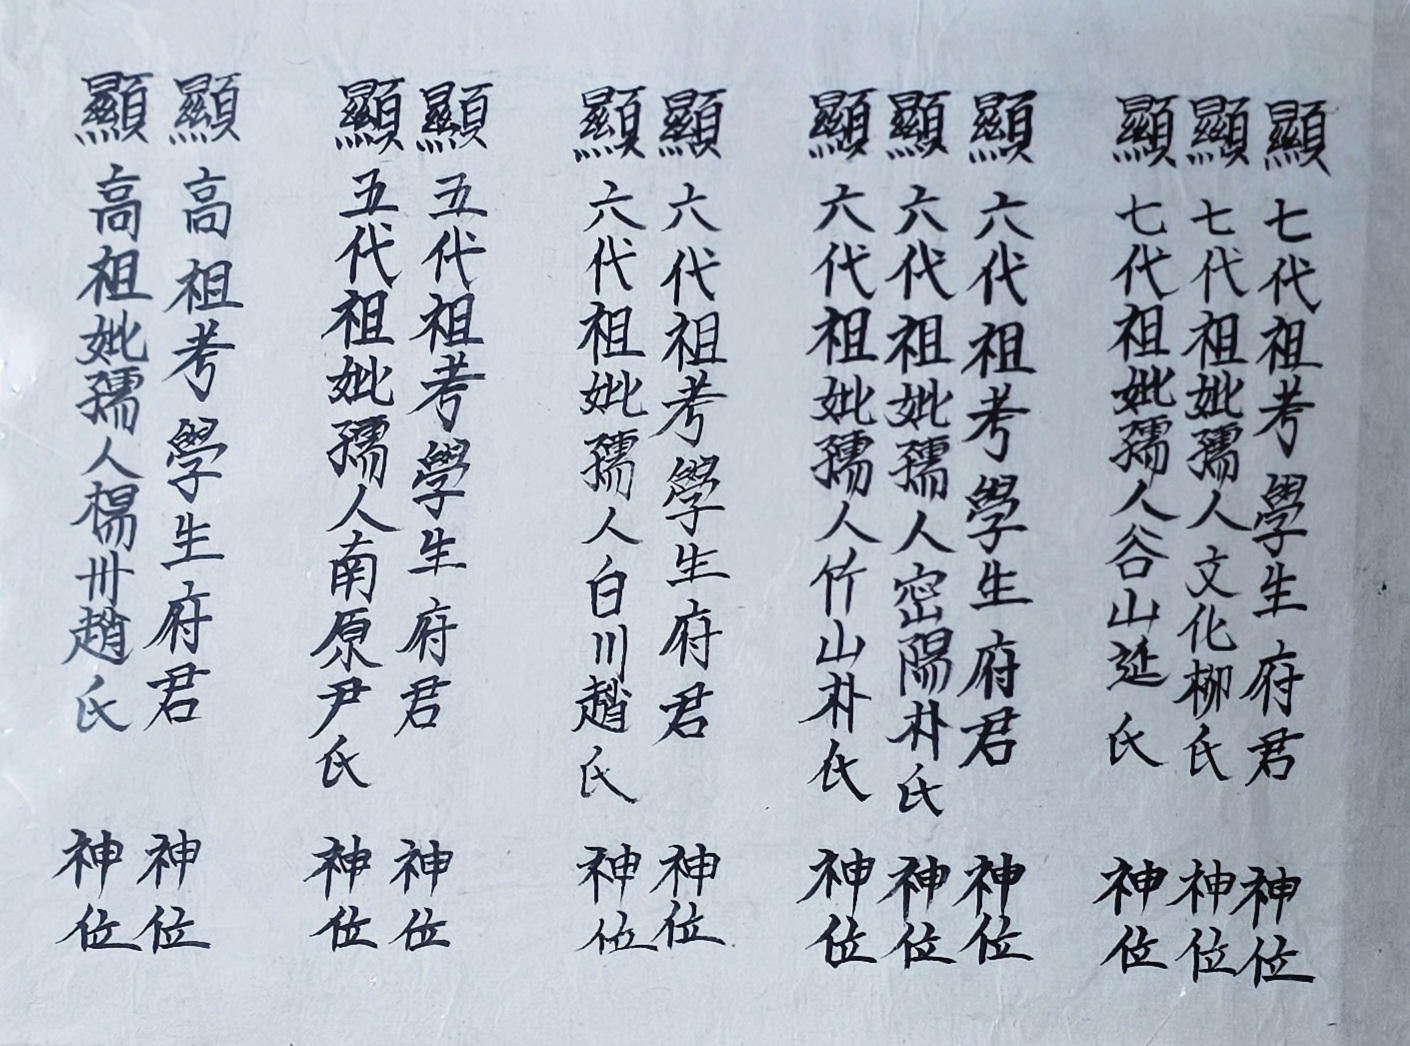 顯七代祖考學生府君神位
顯七代祖妣孺人文化柳氏神位
顯七代祖妣孺人谷山延氏神位
顯六代祖考學生府君神位
顯六代祖妣孺人密陽朴氏神位
顯六代祖妣孺人竹山朴氏神位
顯六代祖考學生府君神位
顯六代祖妣孺人白川趙氏神位
顯五代祖考學生府君神位
顯五代祖妣孺人南原尹氏神位
顯高祖考學生府君神位
顯高祖妣孺人楊州趙氏神位